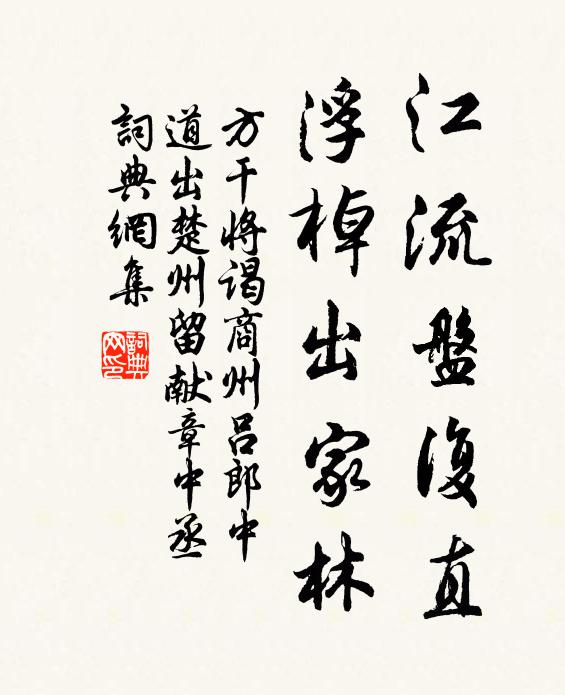 江流盤復直
浮棹出家林
方干将谒商州吕郎中
道出楚州留献章中丞
詞典網集
詞典
网印